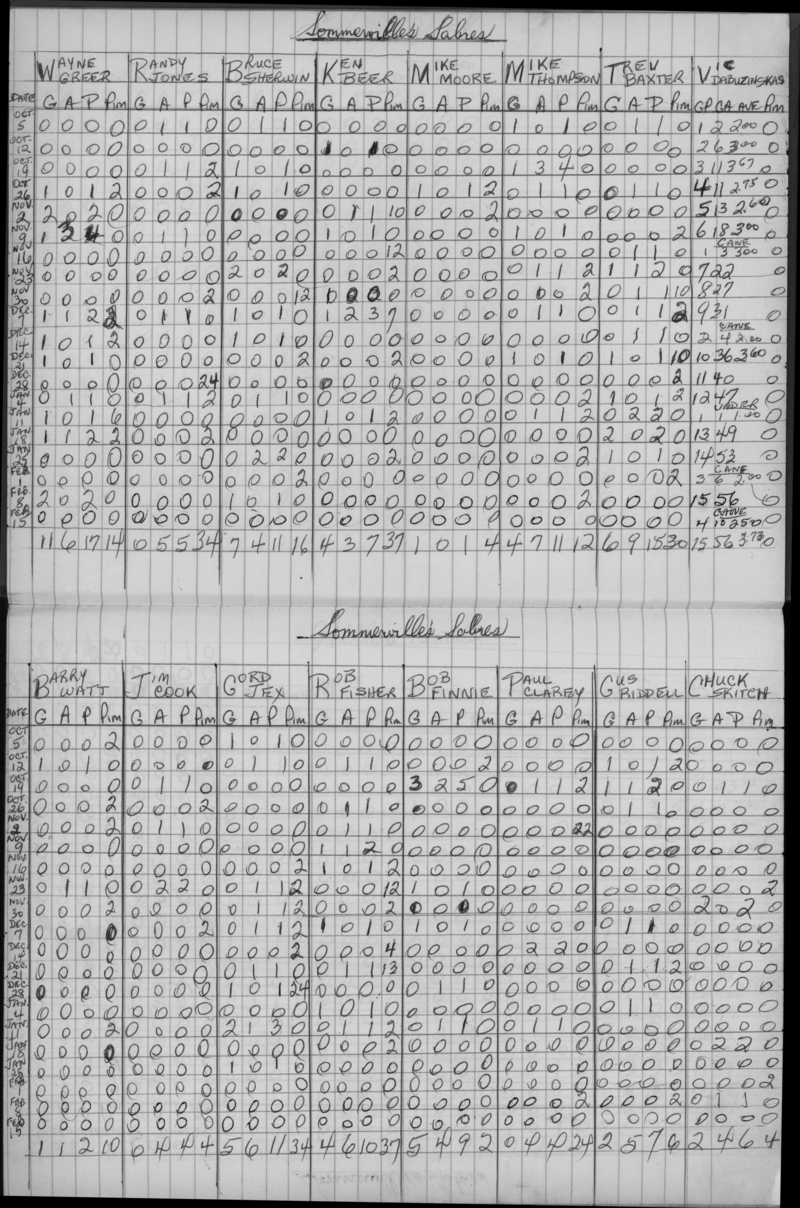 Sommerville's Sabres
WAYNE GREER RANDY JONES BRUCE SHERWIN KEN BEER MIKE MOORE MIKE THOMPSON TREV BAXTER VIC DABUZINSKAS
DATE G A P Pim G A P Pim G A P Pim G A P Pim G A P Pim G A P Pim G A P Pim GP GA AVE Pim
OCT 5 0 0 0 0 0 1 1 0 0 1 1 0 0 0 0 0 0 0 0 0 1 0 1 0 0 1 1 0 1 2 2.00 0
OCT. 12 0 0 0 0 0 0 0 0 0 0 0 0 1 0 1 0 0 0 0 0 0 0 0 0 0 0 0 0 2 6 3.00 0
OCT. 19 0 0 0 0 0 1 1 2 1 0 1 0 0 0 0 0 0 0 0 0 1 3 4 0 0 0 0 0 3 11 3.67 0
OCT 26 1 0 1 2 0 0 0 2 1 0 1 0 0 0 0 0 1 0 1 2 0 1 1 0 0 1 1 0 4 11 2.75 0
NOV. 2 2 0 2 0 0 0 0 0 0 0 0 0 0 1 1 10 0 0 0 2 0 0 0 0 0 0 0 0 5 13 2.60 0
NOV. 9 1 3 4 0 0 1 1 0 0 0 0 0 1 0 1 0 0 0 0 0 1 0 1 0 0 0 0 2 6 18 3.00 0
NOV 16 0 0 0 0 0 0 0 0 0 0 0 0 0 0 0 12 0 0 0 0 0 0 0 0 0 1 1 0 CANE 1 3 3.00 0
NOV 23 0 0 0 0 0 0 0 0 2 0 2 0 0 0 0 2 0 0 0 0 0 1 1 2 1 1 2 0 7 22 0
NOV 30 0 0 0 0 0 0 0 2 0 0 0 12 0 0 0 0 0 0 0 0 0 0 0 2 0 1 1 10 8 27 0
DEC. 7 1 1 2 2 0 1 1 0 1 0 1 0 1 2 3 7 0 0 0 0 0 1 1 0 0 1 1 2 9 31 0
DEC. 14 1 0 1 2 0 0 0 0 1 0 1 0 0 0 0 0 0 0 0 0 0 0 0 0 0 1 1 0 CANE 2 4 2.00 0
DEC. 21 1 0 1 0 0 0 0 0 0 0 0 2 0 0 0 2 0 0 0 0 1 0 1 0 1 0 1 10 10 36 3.60 0
DEC. 28 0 0 0 0 0 0 0 24 0 0 0 0 0 0 0 0 0 0 0 0 0 0 0 0 0 0 0 2 11 40 0
JAN 4 0 1 1 0 0 1 1 2 0 1 1 0 0 0 0 0 0 0 0 0 0 0 0 2 1 0 1 2 12 47 0
JAN 11 1 0 1 6 0 0 0 0 0 0 0 0 1 0 1 2 0 0 0 0 0 1 1 2 0 2 2 0 1 1 1.00 0
JAN 18 1 1 2 2 0 0 0 2 0 0 0 0 0 0 0 0 0 0 0 0 0 0 0 0 2 0 2 0 13 49 0
JAN 25 0 0 0 0 0 0 0 0 0 2 2 0 0 0 0 2 0 0 0 0 0 0 0 2 1 0 1 0 14 53 0
FEB 1 0 0 0 0 0 0 0 0 0 0 0 2 0 0 0 0 0 0 0 0 0 0 0 0 0 0 0 2 CANE 3 6 2.00 0
FEB. 8 2 0 2 0 0 0 0 0 1 0 1 0 0 0 0 0 0 0 0 0 0 0 0 2 0 0 0 0 15 56 0
FEB. 15 0 0 0 0 0 0 0 0 0 0 0 0 0 0 0 0 0 0 0 0 0 0 0 0 0 0 0 0 CANE 4 10 2.50 0
11 6 17 14 0 5 5 34 7 4 11 16 4 3 7 37 1 0 1 4 4 7 11 12 6 9 15 30 15 56 3.73 0
Sommerville's Sabres
BARRY WATT JIM COOK GORD JEX ROB FISHER BOB FINNIE PAUL CLAREY GUS RIDDELL CHUCK SKITCH
DATE G A P Pim G A P Pim G A P Pim G A P Pim G A P Pim G A P Pim G A P Pim G A P Pim
OCT 5 0 0 0 2 0 0 0 0 1 0 1 0 0 0 0 0 0 0 0 0 0 0 0 0 0 0 0 0 0 0 0 0
OCT 12 1 0 1 0 0 0 0 0 0 1 1 0 0 1 1 0 0 0 0 2 0 0 0 0 1 0 1 2 0 0 0 0
OCT 19 0 0 0 0 0 1 1 0 0 0 0 0 0 0 0 0 3 2 5 0 0 1 1 2 1 1 2 0 0 1 1 0
OCT. 26 0 0 0 2 0 0 0 2 0 0 0 0 0 1 1 0 0 0 0 0 0 0 0 0 0 1 1 0 0 0 0 0
NOV. 2 0 0 0 2 0 1 1 0 0 0 0 0 0 1 1 0 0 0 0 0 0 0 0 22 0 0 0 0 0 0 0 0
NOV 9 0 0 0 0 0 0 0 0 0 0 0 0 1 1 2 0 0 0 0 0 0 0 0 0 0 0 0 0 0 0 0 0
NOV 16 0 0 0 0 0 0 0 0 0 0 0 2 1 0 1 2 0 0 0 0 0 0 0 0 0 0 0 0 0 0 0 0
NOV. 23 0 1 1 0 0 2 2 0 0 1 1 2 0 0 0 12 1 0 1 0 0 0 0 0 0 0 0 0 0 0 0 2
NOV 30 0 0 0 2 0 0 0 0 0 1 1 2 0 0 0 2 0 0 0 0 0 0 0 0 0 0 0 0 2 0 2 0
DEC 7 0 0 0 0 0 0 0 2 0 1 1 2 1 0 1 0 1 0 1 0 0 0 0 0 0 1 1 0 0 0 0 0
DEC. 14 0 0 0 0 0 0 0 0 0 0 0 2 0 0 0 4 0 0 0 0 0 2 2 0 0 0 0 0 0 0 0 0
DEC. 21 0 0 0 0 0 0 0 0 0 1 1 0 0 1 1 13 0 0 0 0 0 0 0 0 0 1 1 2 0 0 0 0
DEC 28 0 0 0 0 0 0 0 0 1 0 1 24 0 0 0 0 0 1 1 0 0 0 0 0 0 0 0 0 0 0 0 0
JAN. 4 0 0 0 0 0 0 0 0 0 0 0 0 1 0 1 0 0 0 0 0 0 0 0 0 0 1 1 0 0 0 0 0
JAN. 11 0 0 0 2 0 0 0 0 2 1 3 0 0 1 1 2 0 1 1 0 0 1 1 0 0 0 0 0 0 0 0 0
JAN 18 0 0 0 0 0 0 0 0 0 0 0 0 0 0 0 2 0 0 0 0 0 0 0 0 0 0 0 0 0 2 2 0
JAN 25 0 0 0 0 0 0 0 0 1 0 1 0 0 0 0 0 0 0 0 0 0 0 0 0 0 0 0 0 0 0 0 0
FEB. 0 0 0 0 0 0 0 0 0 0 0 0 0 0 0 0 0 0 0 0 0 0 0 0 0 0 0 0 0 0 0 2
FEB 8 0 0 0 0 0 0 0 0 0 0 0 0 0 0 0 0 0 0 0 0 0 0 0 2 0 0 0 2 0 1 1 0
FEB 15 0 0 0 0 0 0 0 0 0 0 0 0 0 0 0 0 0 0 0 0 0 0 0 0 0 0 0 0 0 0 0 0
1 1 2 10 0 4 4 4 5 6 11 34 4 6 10 37 5 4 9 2 0 4 4 24 2 5 7 6 2 4 6 4